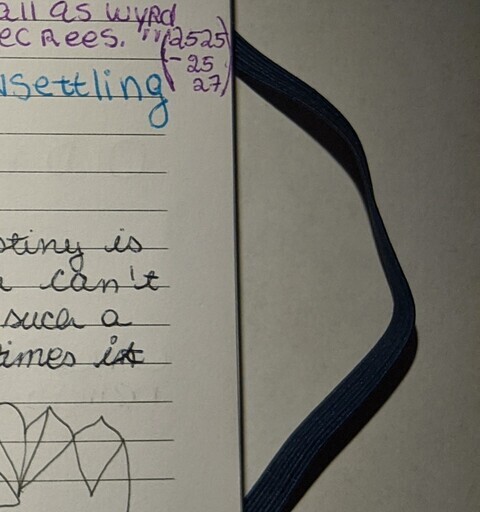 all as wyrd
ecrees." (2525
-25
27)
settling
tiny is
can't
such a
times it